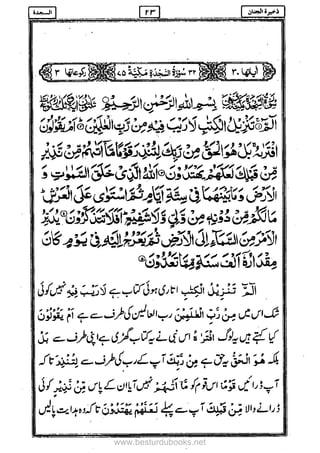 ذخیرة الجنان ٢٣ السجدة
اٰیاتها ٣٠ ٣٢ سُوْرَةُ السَّجْدَةِ مَكِّیَّةٌ ٧٥ رکوعاتها ٣
بِسْمِ اللهِ الرَّحْمٰنِ الرَّحِیْمِ
الٓمّٓ تَنْزِیْلُ الْكِتٰبِ لَا رَیْبَ فِیْهِ مِنْ رَّبِّ الْعٰلَمِیْنَ اَمْ یَقُوْلُوْنَ
افْتَرٰىهُ بَلْ هُوَ الْحَقُّ مِنْ رَّبِّكَ لِتُنْذِرَ قَوْمًا مَّاۤ اَتٰىهُمْ مِّنْ نَّذِیْرٍ
مِّنْ قَبْلِكَ لَعَلَّهُمْ یَهْتَدُوْنَ اَللهُ الَّذِیْ خَلَقَ السَّمٰوٰتِ وَ
الْاَرْضَ وَمَا بَیْنَهُمَا فِیْ سِتَّةِ اَیَّامٍ ثُمَّ اسْتَوٰى عَلَى الْعَرْشِ
مَا لَكُمْ مِّنْ دُوْنِهٖ مِنْ وَّلِیٍّ وَّلَا شَفِیْعٍ اَفَلَا تَتَذَكَّرُوْنَ یُدَبِّرُ
الْاَمْرَ مِنَ السَّمَآءِ اِلَى الْاَرْضِ ثُمَّ یَعْرُجُ اِلَیْهِ فِیْ یَوْمٍ كَانَ
مِقْدَارُهٗۤ اَلْفَ سَنَةٍ مِّمَّا تَعُدُّوْنَ
الٓمّٓ تَنْزِیْلُ الْكِتٰبِ اتاری ہوئی کتاب ہے لَا رَیْبَ فِیْهِ نہیں کوئی
شک اس میں مِنْ رَّبِّ الْعٰلَمِیْنَ رب العالمین کی طرف سے ہے اَمْ یَقُوْلُوْنَ
کیا کہتے ہیں یہ لوگ افْتَرٰىهُ اس نبی نے یہ کتاب گھڑی ہے اپنی طرف سے بَلْ
بلکہ هُوَ الْحَقُّ یہ حق ہے مِنْ رَّبِّكَ آپ کے رب کی طرف سے لِتُنْذِرَ تاکہ
آپ ڈرائیں قَوْمًا اس قوم کو مَّاۤ اَتٰىهُمْ نہیں آیا ان کے پاس مِّنْ نَّذِیْرٍ کوئی
ڈرانے والا مِّنْ قَبْلِكَ آپ سے پہلے لَعَلَّهُمْ یَهْتَدُوْنَ تاکہ وہ ہدایت پالیں
www.besturdubooks.net